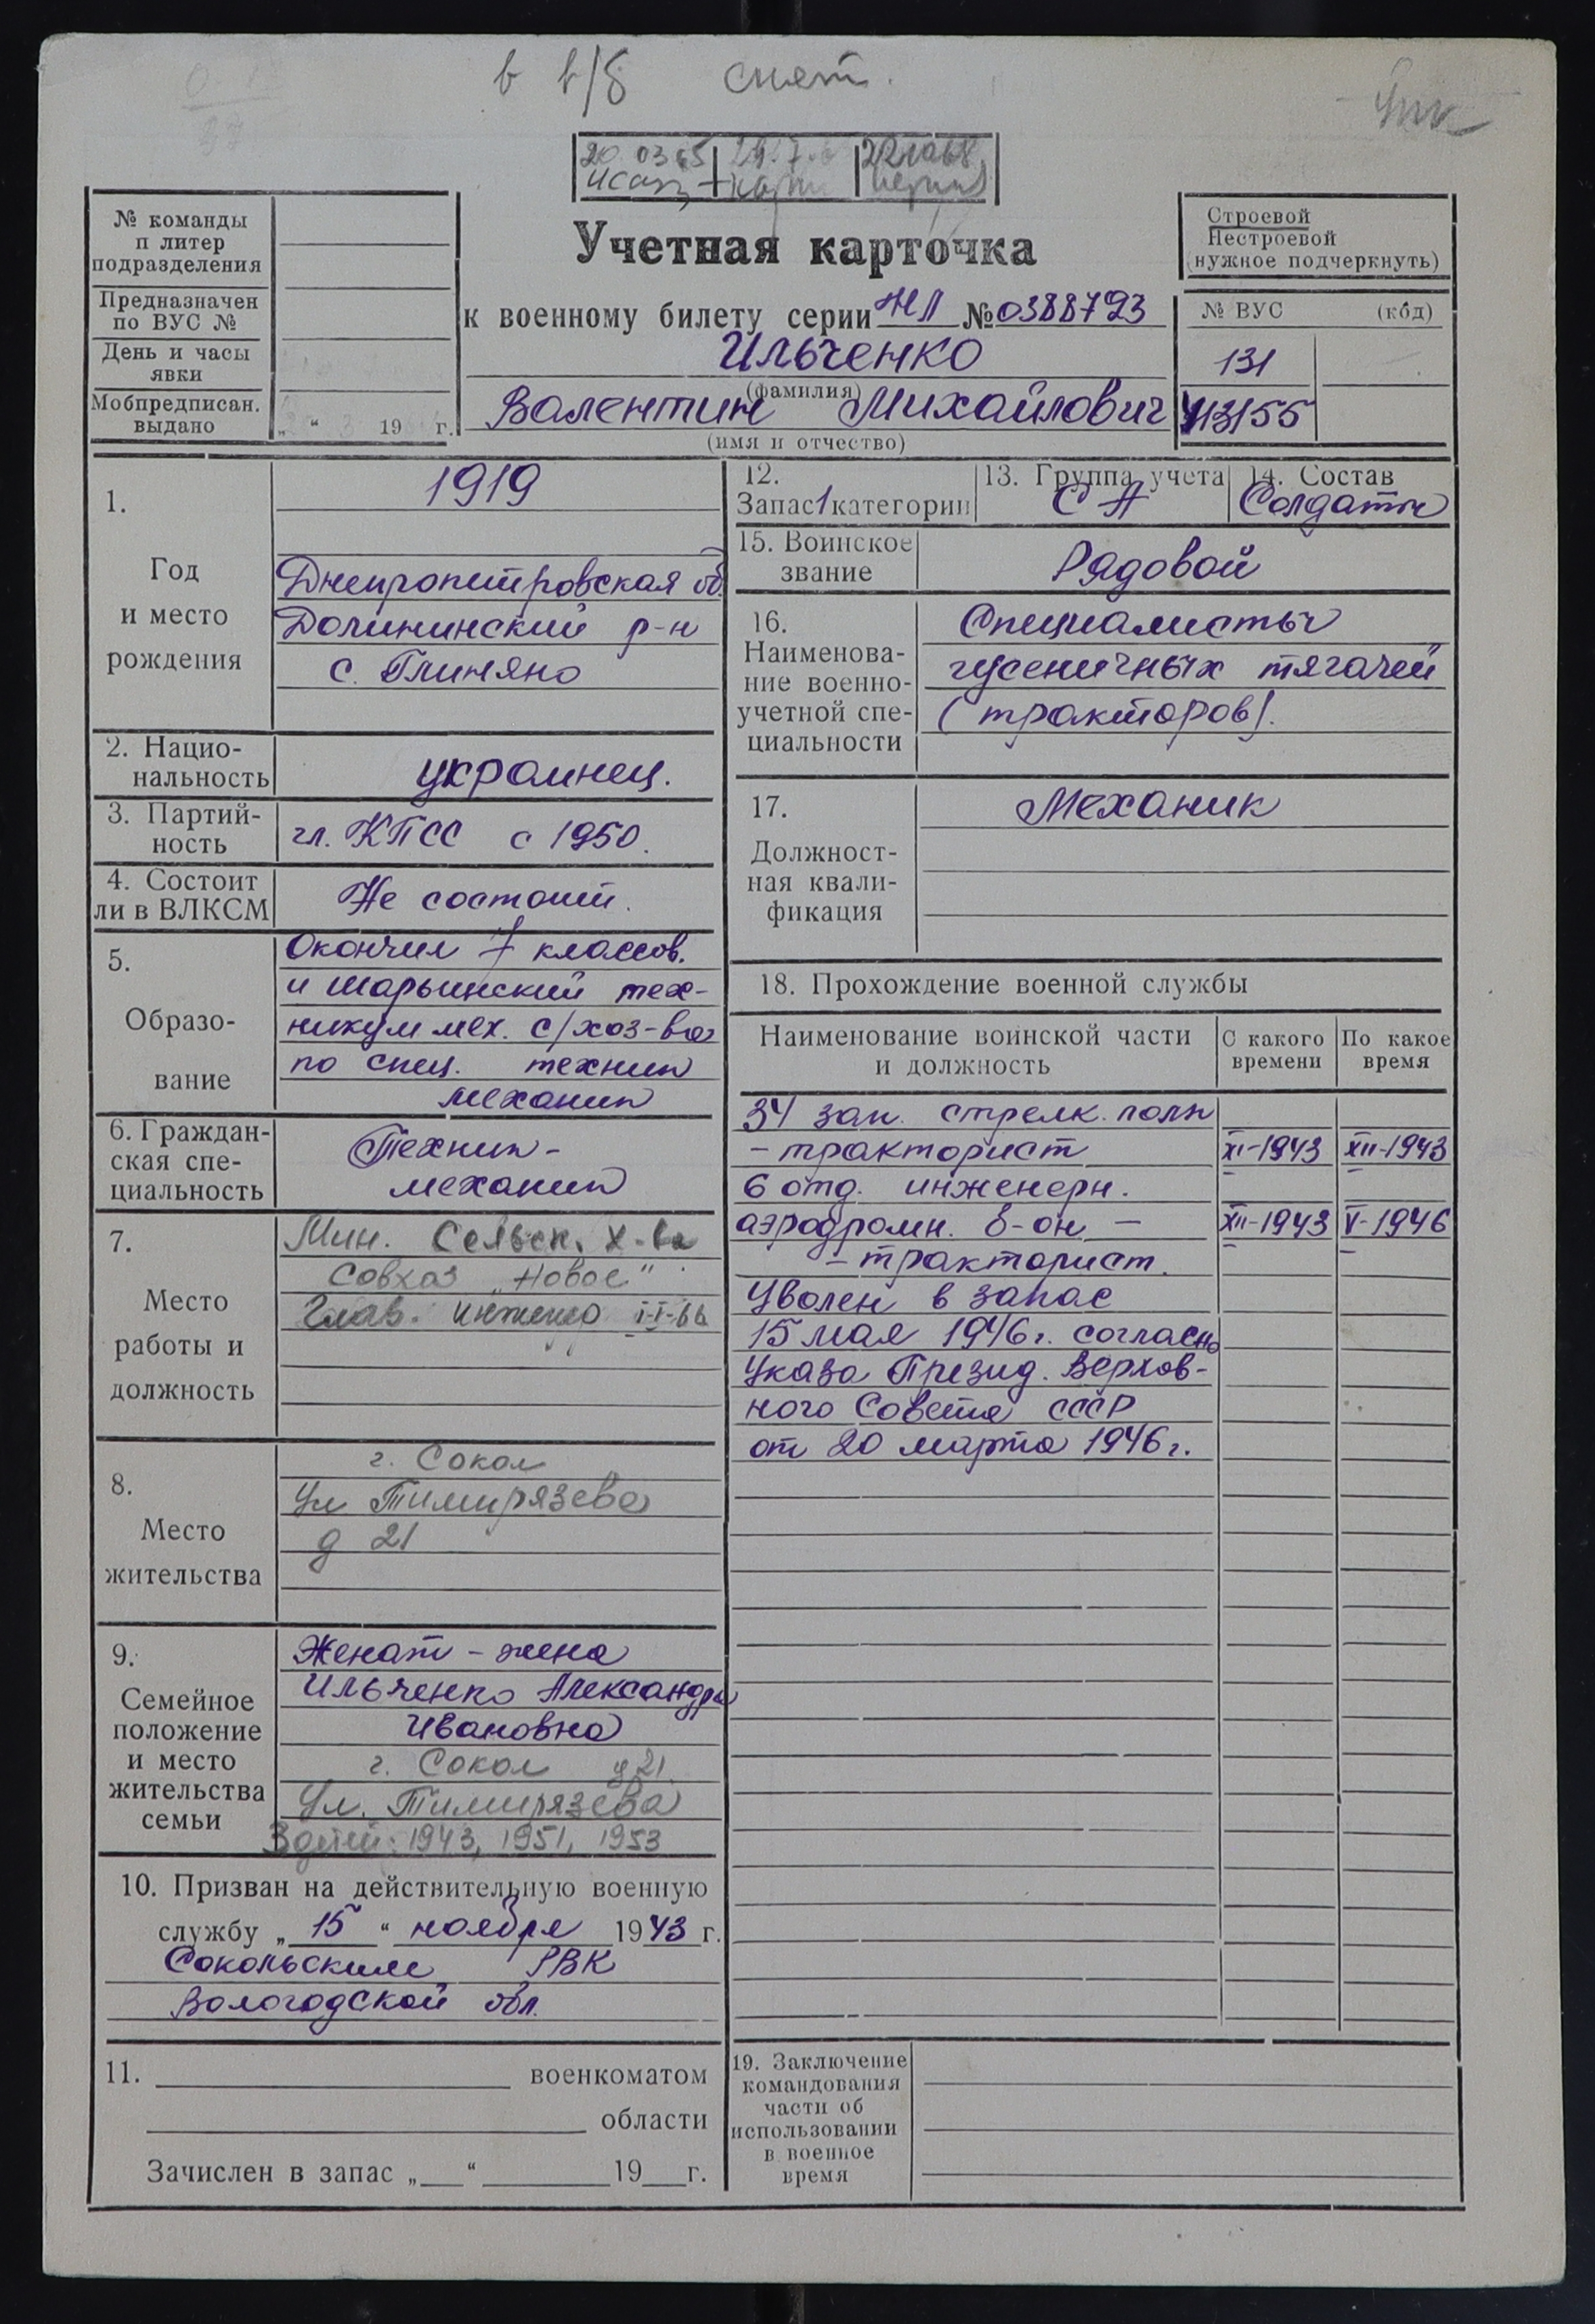 в в/б снят.
20.03.65
Учетная карточка
к военному билету серии НЛ № 0388793
Ильченко
(фамилия)
Валентин Михайлович
(имя и отчество)
№ команды
п литер
подразделения
Предназначен
по ВУС №
День и часы
явки
Мобпредписан.
выдано „ “ 19 г.
Строевой
Нестроевой
(нужное подчеркнуть)
№ ВУС (код)
131
113155
1.
Год
и место
рождения
1919
Днепропетровская об.
Долининский р-н
с. Глиняно
2. Нацио-
нальность
украинец.
3. Партий-
ность
чл. КПСС с 1950.
4. Состоит
ли в ВЛКСМ
Не состоит.
5.
Образо-
вание
Окончил 7 классов.
и Марьинский тех-
никум мех. с/хоз-ва
по спец. техник
механик
6. Граждан-
ская спе-
циальность
Техник-
механик
7.
Место
работы и
должность
Мин. Сельск. х-ва
Совхоз „Новое"
Глав. инженер
8.
Место
жительства
г. Сокол
Ул Тимирязева
д 21
9.
Семейное
положение
и место
жительства
семьи
Женат - жена
Ильченко Александра
Ивановна
г. Сокол д 21.
Ул. Тимирязева
3 детей: 1943, 1951, 1953
10. Призван на действительную военную
службу „15“ ноября 1943 г.
Сокольским РВК
Вологодской обл.
11. военкоматом
области
Зачислен в запас „ “ 19 г.
12.
Запас 1 категории
13. Группа учета
СА
14. Состав
Солдаты
15. Воинское
звание
Рядовой
16.
Наименова-
ние военно-
учетной спе-
циальности
Специалисты
гусеничных тягачей
(тракторов).
17.
Должност-
ная квали-
фикация
Механик
18. Прохождение военной службы
Наименование воинской части
и должность
С какого
времени
По какое
время
34 зап. стрелк. полк
- тракторист XI-1943 XII-1943
6 отд. инженерн.
аэродромн. б-он - XII-1943 V-1946
- тракторист.
Уволен в запас
15 мая 1946 г. согласно
Указа Презид. Верхов-
ного Совета СССР
от 20 марта 1946 г.
19. Заключение
командования
части об
использовании
в военное
время